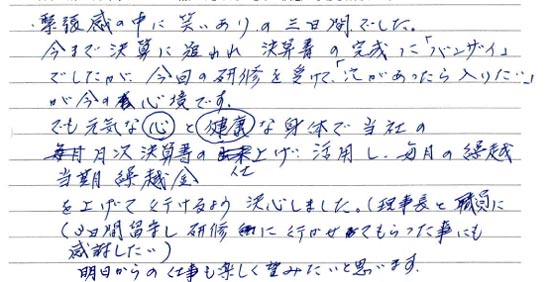 ・緊張感の中に笑いありの三日間でした。
今まで決算に追われ決算書の完成に「バンザイ」
でしたが、今回の研修を受けて、「穴があったら入りたい」
が今の心境です。
でも元気な心と健康な身体で当社の
月次決算書の仕上げ活用し、毎月の繰越
当期繰越金
を上げて行けるよう決心しました。(理事長と職員に
(3日間留守し研修に行かせてもらった事にも
感謝したい)
明日からの仕事も楽しく望みたいと思います。